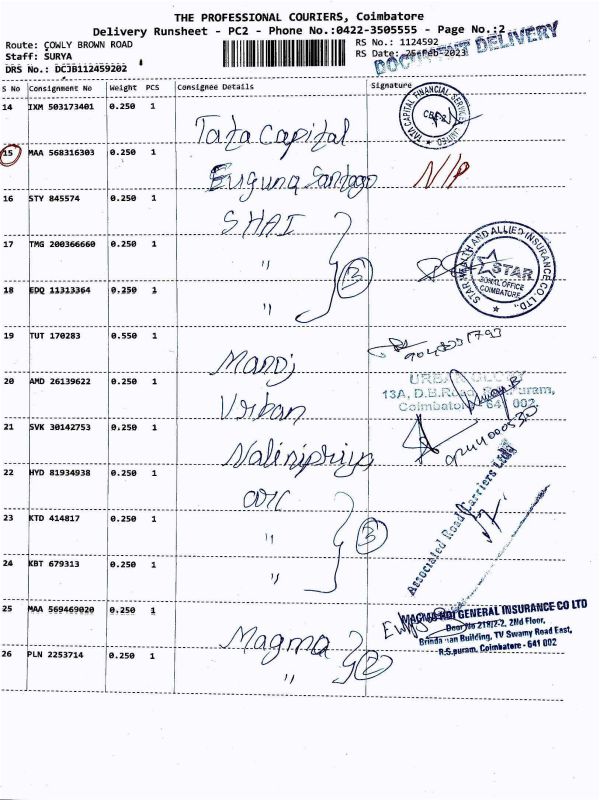 THE PROFESSIONAL COURIERS, Coimbatore
Delivery Runsheet - PC2 - Phone No.:0422-3505555 - Page No.:2
Route: COWLY BROWN ROAD
Staff: SURYA
DRS No.: DCJB112459202
RS No.: 1124592
RS Date: 25-Feb-2023
DOCUMENT DELIVERY
S No Consignment No Weight PCS Consignee Details Signature
14 IXM 503173401 0.250 1 Tata Capital
TATA CAPITAL FINANCIAL SERVICES LIMITED
CBE-2
15 MAA 568316303 0.250 1 N/P
16 STY 845574 0.250 1 SHAI
17 TMG 200366660 0.250 1 "
18 EDQ 11313364 0.250 1 "
3
STAR HEALTH AND ALLIED INSURANCE CO LTD.,
STAR
ZONAL OFFICE
COIMBATORE
19 TUT 170283 0.550 1 Manoj
20 AMD 26139622 0.250 1 Urban
13A, D.B.Road, R.S.Puram,
Coimbatore - 641 002.
21 SVK 30142753 0.250 1 Nalinipriya
22 HYD 81934938 0.250 1
23 KTD 414817 0.250 1 "
24 KBT 679313 0.250 1 "
3
Associated Road Carriers Ltd
25 MAA 569469020 0.250 1 Magma
26 PLN 2253714 0.250 1 "
2
MAGMA HDI GENERAL INSURANCE CO LTD
Door No 218/2-2, 2Nd Floor,
Brindavan Building, TV Swamy Road East,
R.S.puram, Coimbatore - 641 002